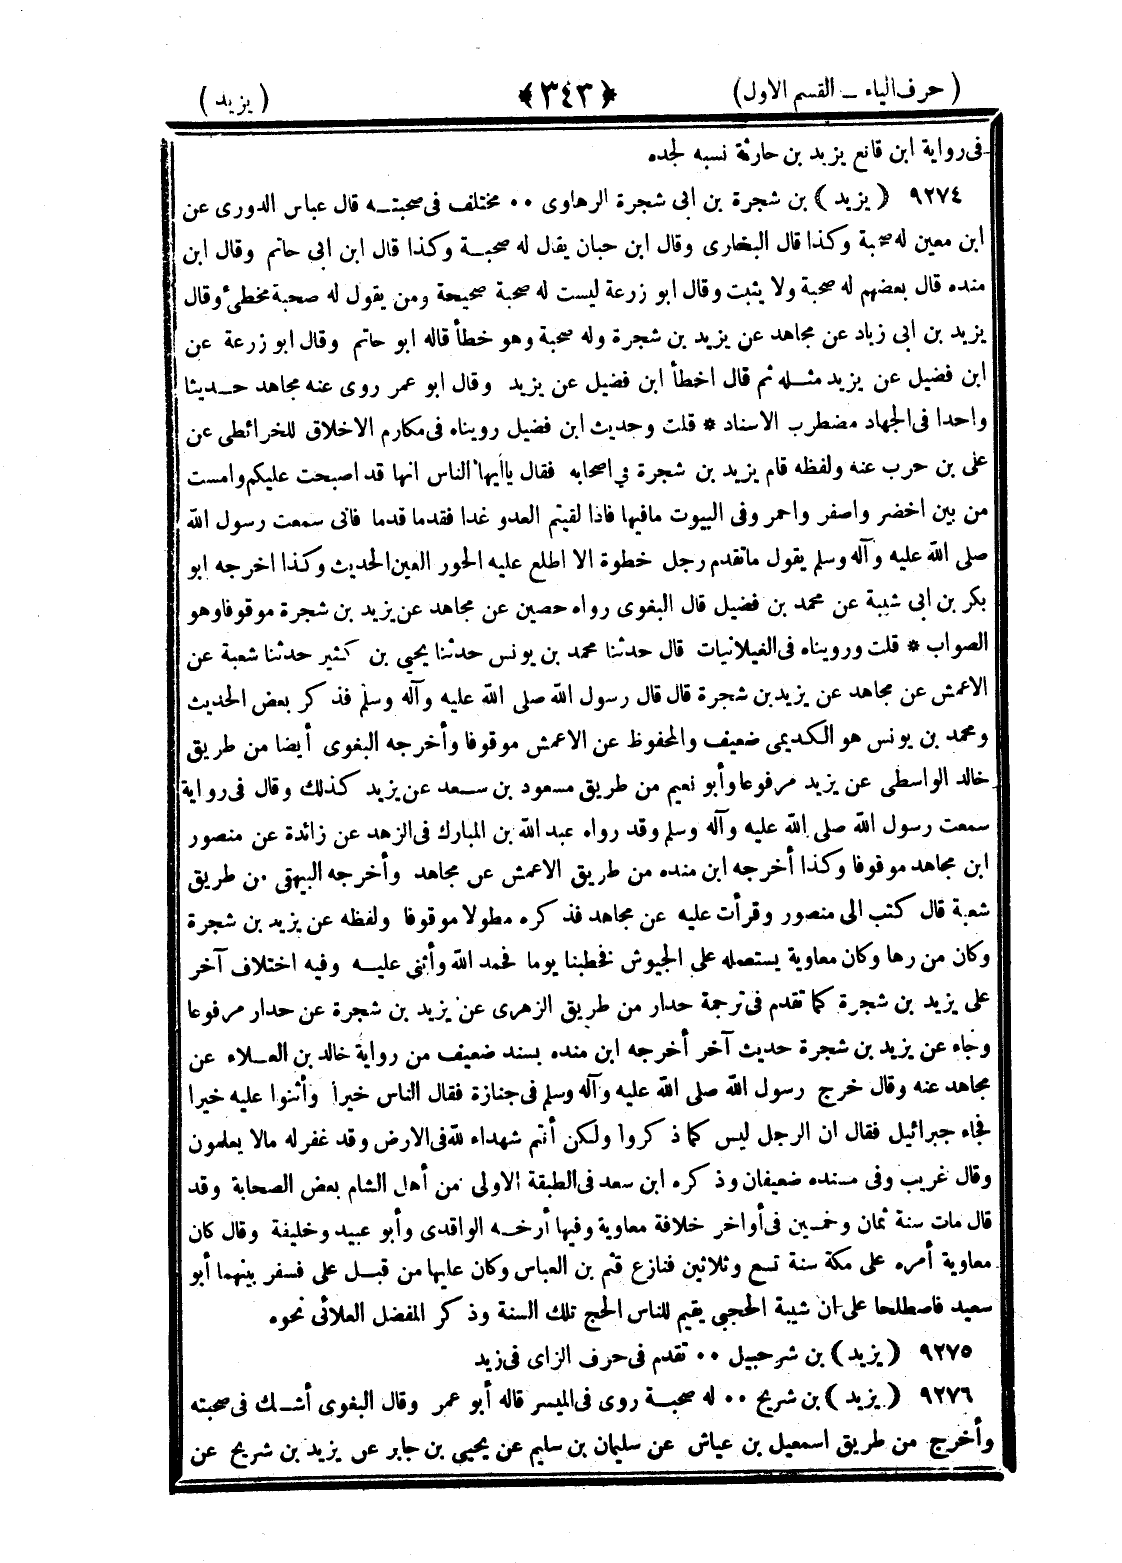 ( حرف الياء ــ القسم الاول ) ﴿ ٣٤٣ ﴾ ( يزيد )
فى رواية ابن قانع يزيد بن حارثة نسبه لجده
٩٢٧٤ ( يزيد ) بن شجرة بن ابى شجرة الرهاوى ٠٠ مختلف فى صحبته قال عباس الدورى عن
ابن معين له صحبة وكذا قال البخارى وقال ابن حبان يقال له صحبة وكذا قال ابن ابى حاتم وقال ابن
منده قال بعضهم له صحبة ولا يثبت وقال ابو زرعة ليست له صحبة صحيحة ومن يقول له صحبة مخطئ وقال
يزيد بن ابى زياد عن مجاهد عن يزيد بن شجرة وله صحبة وهو خطأ قاله ابو حاتم وقال ابو زرعة عن
ابن فضيل عن يزيد مثله ثم قال اخطأ ابن فضيل عن يزيد وقال ابو عمر روى عنه مجاهد حديثا
واحدا فى الجهاد مضطرب الاسناد * قلت وحديث ابن فضيل رويناه فى مكارم الاخلاق للخرائطى عن
على بن حرب عنه ولفظه قام يزيد بن شجرة في اصحابه فقال يا أيها الناس انها قد اصبحت عليكم وامست
من بين اخضر واصفر واحمر وفى البيوت مافيها فاذا لقيتم العدو غدا فقدما قدما فانى سمعت رسول الله
صلى الله عليه وآله وسلم يقول ماتقدم رجل خطوة الا اطلع عليه الحور العين الحديث وكذا اخرجه ابو
بكر بن ابى شيبة عن محمد بن فضيل قال البغوى رواه حصين عن مجاهد عن يزيد بن شجرة موقوفا وهو
الصواب * قلت ورويناه فى الغيلانيات قال حدثنا محمد بن يونس حدثنا يحيى بن كثير حدثنا شعبة عن
الاعمش عن مجاهد عن يزيد بن شجرة قال قال رسول الله صلى الله عليه وآله وسلم فذكر بعض الحديث
ومحمد بن يونس هو الكديمى ضعيف والمحفوظ عن الاعمش موقوفا وأخرجه البغوى أيضا من طريق
خالد الواسطى عن يزيد مرفوعا وأبو نعيم من طريق مسعود بن سعد عن يزيد كذلك وقال فى رواية
سمعت رسول الله صلى الله عليه وآله وسلم وقد رواه عبد الله بن المبارك فى الزهد عن زائدة عن منصور
ابن مجاهد موقوفا وكذا أخرجه ابن منده من طريق الاعمش عن مجاهد وأخرجه البيهقى من طريق
شعبة قال كتب الى منصور وقرأت عليه عن مجاهد فذكره مطولا موقوفا ولفظه عن يزيد بن شجرة
وكان من رها وكان معاوية يستعمله على الجيوش فخطبنا يوما فحمد الله وأثنى عليه وفيه اختلاف آخر
على يزيد بن شجرة كما تقدم فى ترجمة حدار من طريق الزهرى عن يزيد بن شجرة عن حدار مرفوعا
وجاء عن يزيد بن شجرة حديث آخر أخرجه ابن منده بسند ضعيف من رواية خالد بن العلاء عن
مجاهد عنه وقال خرج رسول الله صلى الله عليه وآله وسلم فى جنازة فقال الناس خيرا وأثنوا عليه خيرا
فجاء جبرائيل فقال ان الرجل ليس كما ذكروا ولكن أنتم شهداء لله فى الارض وقد غفر له مالا يعلمون
وقال غريب وفى مسنده ضعيفان وذكره ابن سعد فى الطبقة الاولى من أهل الشام بعض الصحابة وقد
قال مات سنة ثمان وخمسين فى أواخر خلافة معاوية وفيها أرخه الواقدى وأبو عبيد وخليفة وقال كان
معاوية أمره على مكة سنة تسع وثلاثين فنازع قثم بن العباس وكان عليها من قبل على فسفر بينهما أبو
سعيد فاصطلحا على ان شيبة الحجبي يقيم للناس الحج تلك السنة وذكر المفضل العلائى نحوه
٩٢٧٥ ( يزيد ) بن شرحبيل ٠٠ تقدم فى حرف الزاى فى زيد
٩٢٧٦ ( يزيد ) بن شريح ٠٠ له صحبة روى فى الميسر قاله أبو عمر وقال البغوى أشك فى صحبته
وأخرج من طريق اسمعيل بن عياش عن سليمان بن سليم عن يحيى بن جابر عن يزيد بن شريح عن